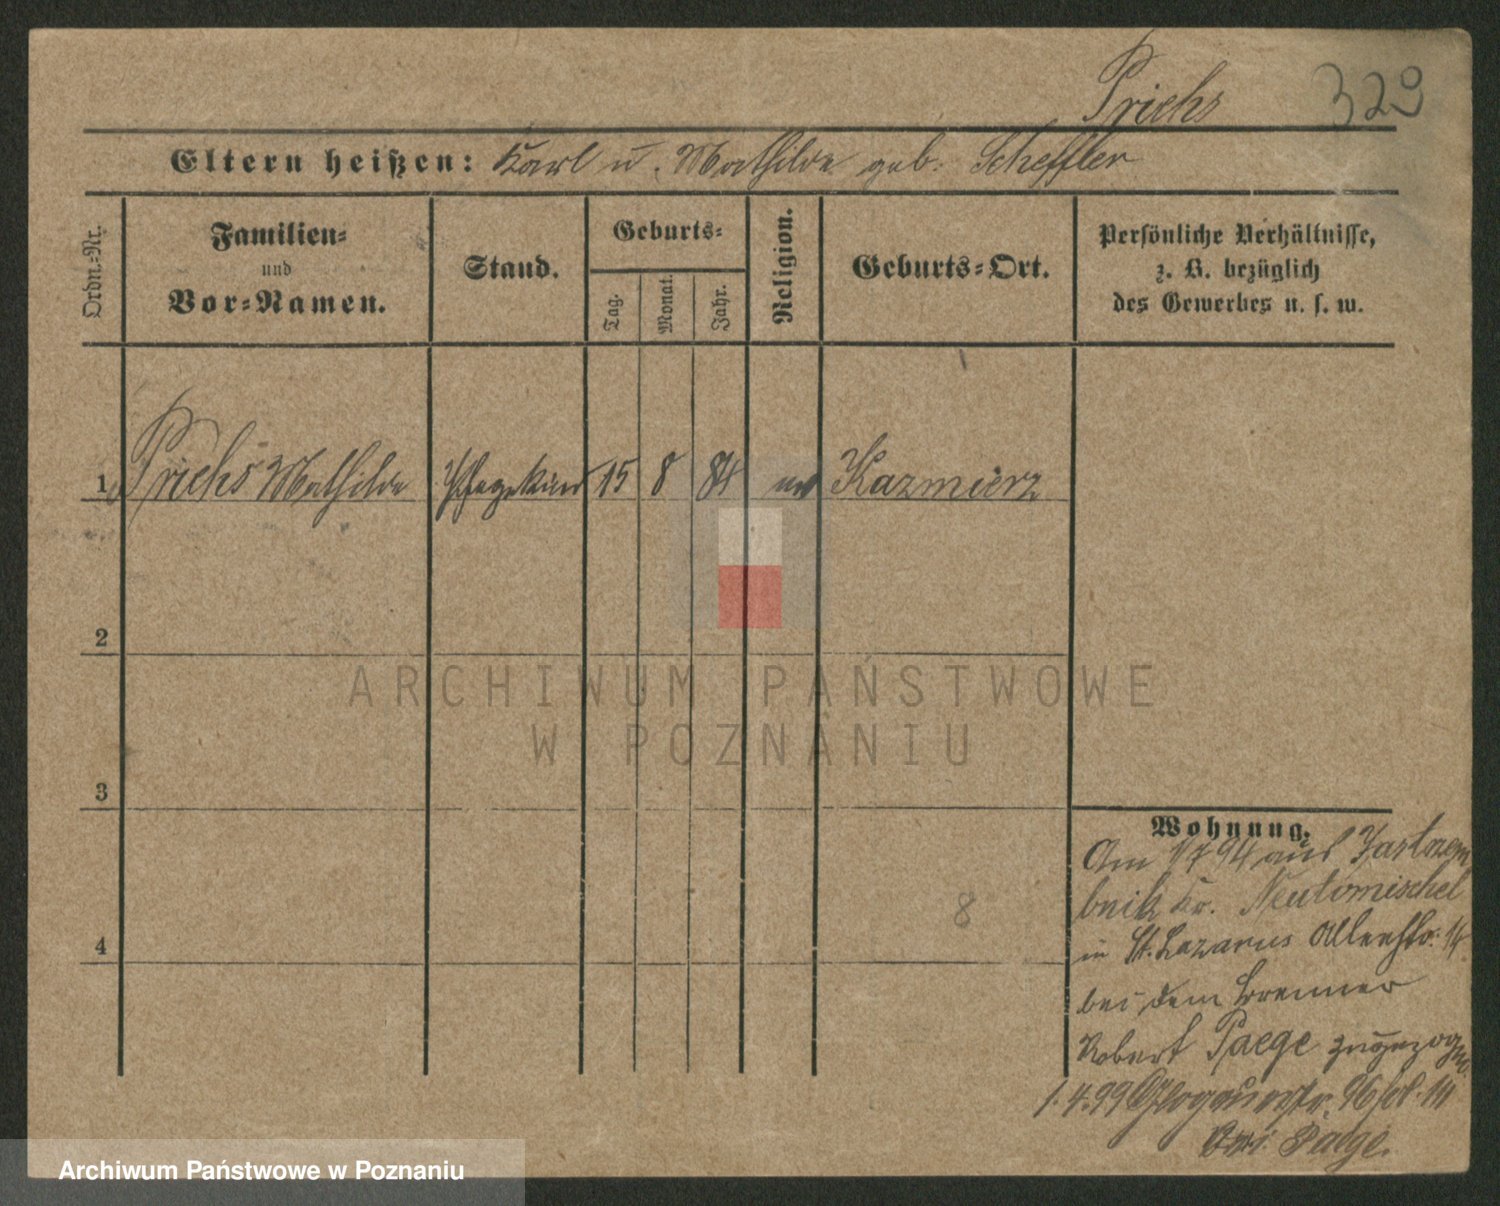 Prichs 329
Eltern heißen: Karl u. Mathilde geb. Scheffler
Ordn.-Nr.
Familien-
und
Vor-Namen.
Stand.
Geburts-
Tag.
Monat.
Jahr.
Religion.
Geburts-Ort.
Persönliche Verhältnisse,
z. B. bezüglich
des Gewerbes u. s. w.
1 Prichs Mathilde Pflegekind 15 8 84 Kazmierz
2
3
4
8
Wohnung.
Am 1/7 94 aus
Kr. Neutomischel
in St. Lazarus 14
bei dem Brenner
Robert Paege zugezogen
1.4.99 Glogauerstr. 96
bei Paege.
ARCHIWUM PAŃSTWOWE
W POZNANIU
Archiwum Państwowe w Poznaniu